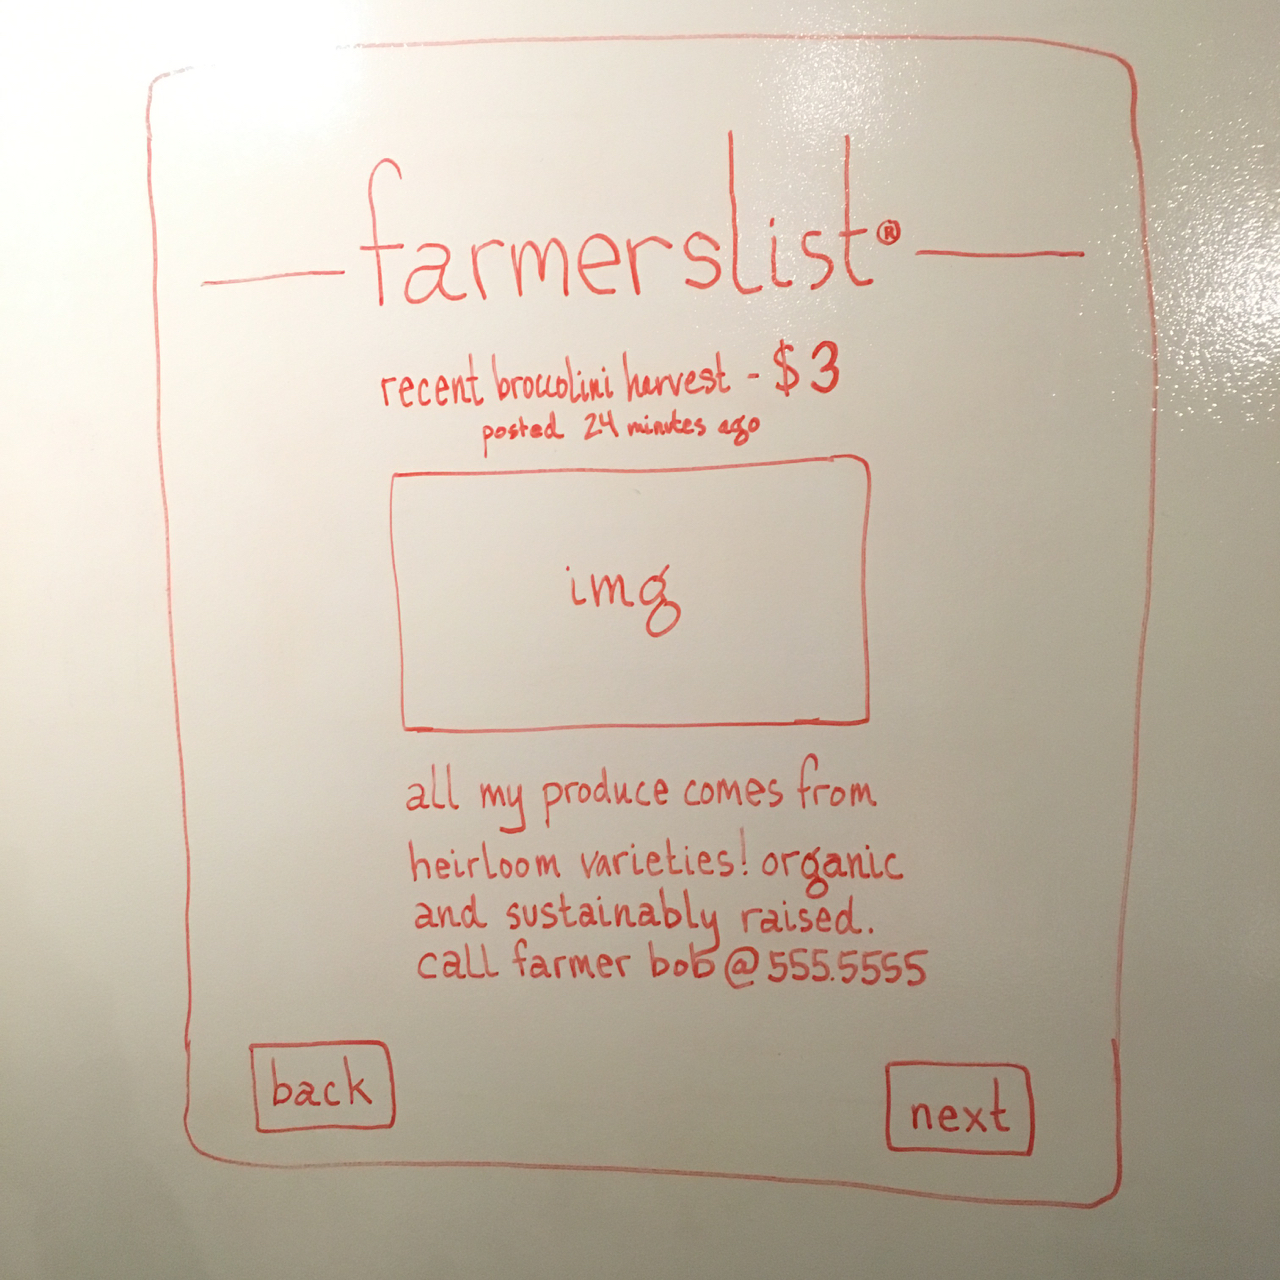 farmerslist®
recent broccolini harvest - $3
posted 24 minutes ago
img
all my produce comes from
heirloom varieties! organic
and sustainably raised.
call farmer bob @ 555.5555
back
next